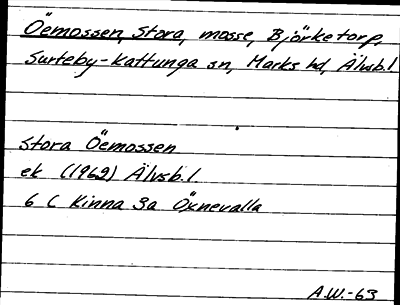 Öemossen, Stora, mosse, Björketorp,
Surteby-Kattunga sn, Marks hd, Älvsb. l
Stora Öemossen
ek (1969) Älvsb. l.
6 C Kinna 3a Öxnevalla
A.W.-63